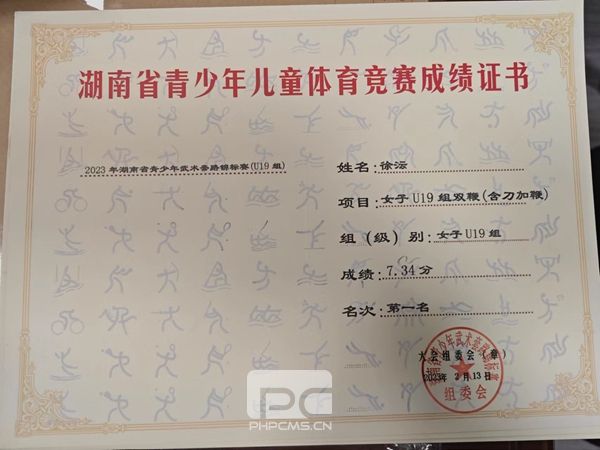 湖南省青少年儿童体育竞赛成绩证书
2023年湖南省青少年武术套路锦标赛(U19组)
姓名:徐沄
项目:女子U19组双鞭(含刀加鞭)
组(级)别:女子U19组
成绩:7.34分
名次:第一名
大会组委会(章)
2023年2月13日
组委会
PC
PHPCMS.CN